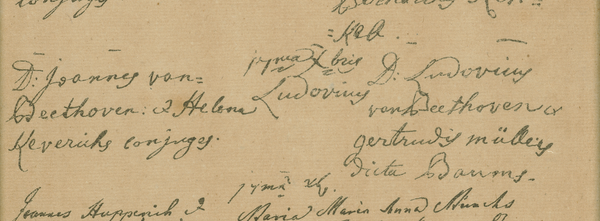 conjuges
=Keb.
D: Joannes van=
Beethoven: & Helena
Keverichs conjuges.
17ma Xbris
Ludovius
D: Ludovius
van Beethoven &
gertrudis müllers
dicta Baums.
17ma
Joannes Hupperich &
Maria
Maria Anna Münchs